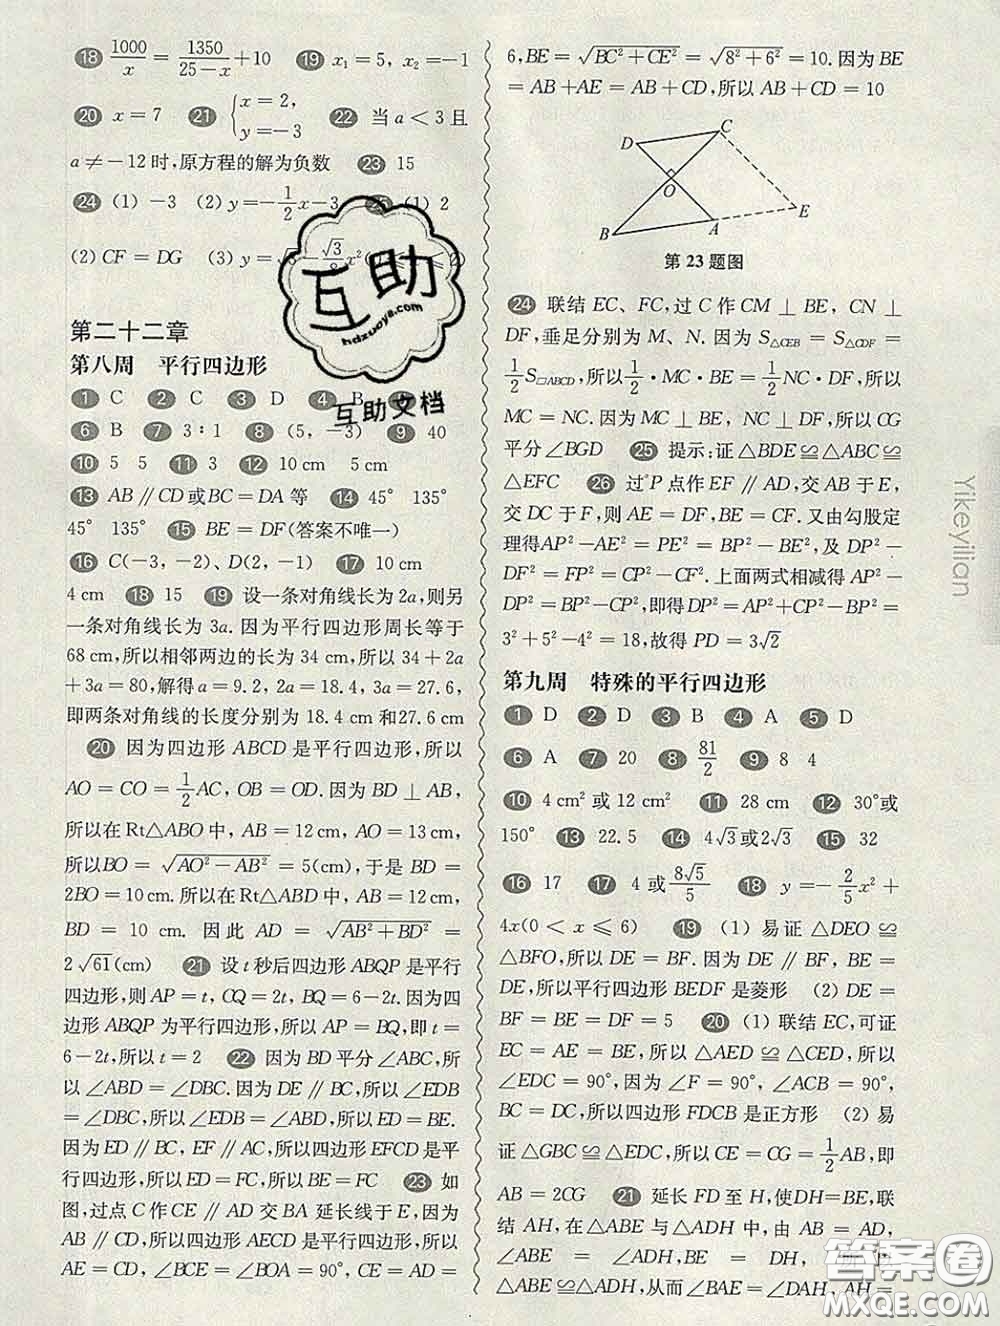 ⑱ 1000/x = 1350/(25-x) + 10 ⑲ x₁ = 5, x₂ = -1
⑳ x = 7 ㉑ { x = 2, y = -3 ㉒ 当 a < 3 且
a ≠ -12 时,原方程的解为负数 ㉓ 15
㉔ (1) -3 (2) y = -1/2 x - 3 (1) 2
(2) CF = DG (3) y =
第二十二章
第八周 平行四边形
① C ② C ③ D ④ B
⑥ B ⑦ 3∶1 ⑧ (5, -3) ⑨ 40
⑩ 5 5 ⑪ 3 ⑫ 10 cm 5 cm
⑬ AB∥CD或BC=DA等 ⑭ 45° 135°
45° 135° ⑮ BE=DF(答案不唯一)
⑯ C(-3, -2)、D(2, -1) ⑰ 10 cm
4 cm ⑱ 15 ⑲ 设一条对角线长为2a,则另
一条对角线长为 3a. 因为平行四边形周长等于
68 cm,所以相邻两边的长为 34 cm,所以 34+2a
+3a=80,解得 a=9.2, 2a=18.4, 3a=27.6,
即两条对角线的长度分别为 18.4 cm 和27.6 cm
⑳ 因为四边形 ABCD 是平行四边形,所以
AO = CO = 1/2 AC, OB = OD. 因为 BD ⊥ AB,
所以在 Rt△ABO 中, AB=12 cm, AO=13 cm,
所以BO = √(AO²-AB²) = 5(cm),于是 BD =
2BO=10 cm. 所以在 Rt△ABD 中, AB=12 cm,
BD = 10 cm. 因此 AD = √(AB²+BD²) =
2√61(cm) ㉑ 设 t 秒后四边形 ABQP 是平行
四边形,则 AP=t, CQ=2t, BQ=6-2t. 因为四
边形 ABQP 为平行四边形,所以 AP=BQ,即 t=
6-2t,所以 t=2 ㉒ 因为 BD 平分∠ABC,所
以∠ABD=∠DBC. 因为 DE∥BC,所以∠EDB
=∠DBC,所以∠EDB=∠ABD,所以 DE=BE.
因为ED∥BC, EF∥AC,所以四边形 EFCD 是平
行四边形,所以ED=FC,所以BE=FC ㉓ 如
图,过点 C 作 CE∥AD 交 BA 延长线于 E,因为
AB∥CD,所以四边形 AECD 是平行四边形,所以
AE = CD, ∠BCE = ∠BOA = 90°,所以 CE =
6, BE = √(BC²+CE²) = √(8²+6²) = 10. 因为 BE
= AB+AE = AB+CD,所以 AB+CD=10
D C O E B A
第 23 题图
㉔ 联结 EC、FC,过 C 作 CM⊥BE, CN⊥
DF,垂足分别为 M、N. 因为 S△CEB = S△CDF =
1/2 S□ABCD,所以 1/2·MC·BE = 1/2 NC·DF,所以
MC=NC. 因为 MC⊥BE, NC⊥DF,所以 CG
平分∠BGD ㉕ 提示:证△BDE≌△ABC≌
△EFC ㉖ 过 P 点作 EF∥AD,交 AB 于 E,
交 DC 于 F,所以AE=DF, BE=CF. 又由勾股定
理得AP²-AE²=PE²=BP²-BE²,及 DP²-
DF²=FP²=CP²-CF². 上面两式相减得 AP²-
DP²=BP²-CP²,即得 DP²=AP²+CP²-BP²=
3²+5²-4²=18,故得 PD=3√2
第九周 特殊的平行四边形
① D ② D ③ B ④ A ⑤ D
⑥ A ⑦ 20 ⑧ 81/2 ⑨ 8 4
⑩ 4 cm² 或 12 cm² ⑪ 28 cm ⑫ 30°或
150° ⑬ 22.5 ⑭ 4√3或2√3 ⑮ 32
⑯ 17 ⑰ 4 或 8√5/5 ⑱ y = -2/5 x² +
4x(0 < x ≤ 6) ⑲ (1) 易证△DEO≌
△BFO,所以 DE=BF. 因为 DE∥BF, BE=
DE,所以平行四边形 BEDF 是菱形 (2) DE=
BF=BE=DF=5 ⑳ (1) 联结 EC,可证
EC=AE=BE,所以△AED≌△CED,所以
∠EDC=90°,因为∠F=90°, ∠ABC=90°,
BC=DC,所以四边形 FDCB 是正方形 (2) 易
证△GBC≌△EDC,所以 CE=CG=1/2 AB,即
AB=2CG ㉑ 延长 FD 至 H,使DH=BE,联
结 AH,在△ABE 与△ADH 中,由 AB=AD,
∠ABE = ∠ADH, BE = DH,
△ABE≌△ADH,从而∠BAE=∠DAH, AH=
Yikeyilian
互助
hdzuoye.com
互助文档
答案圈
MXQE.COM